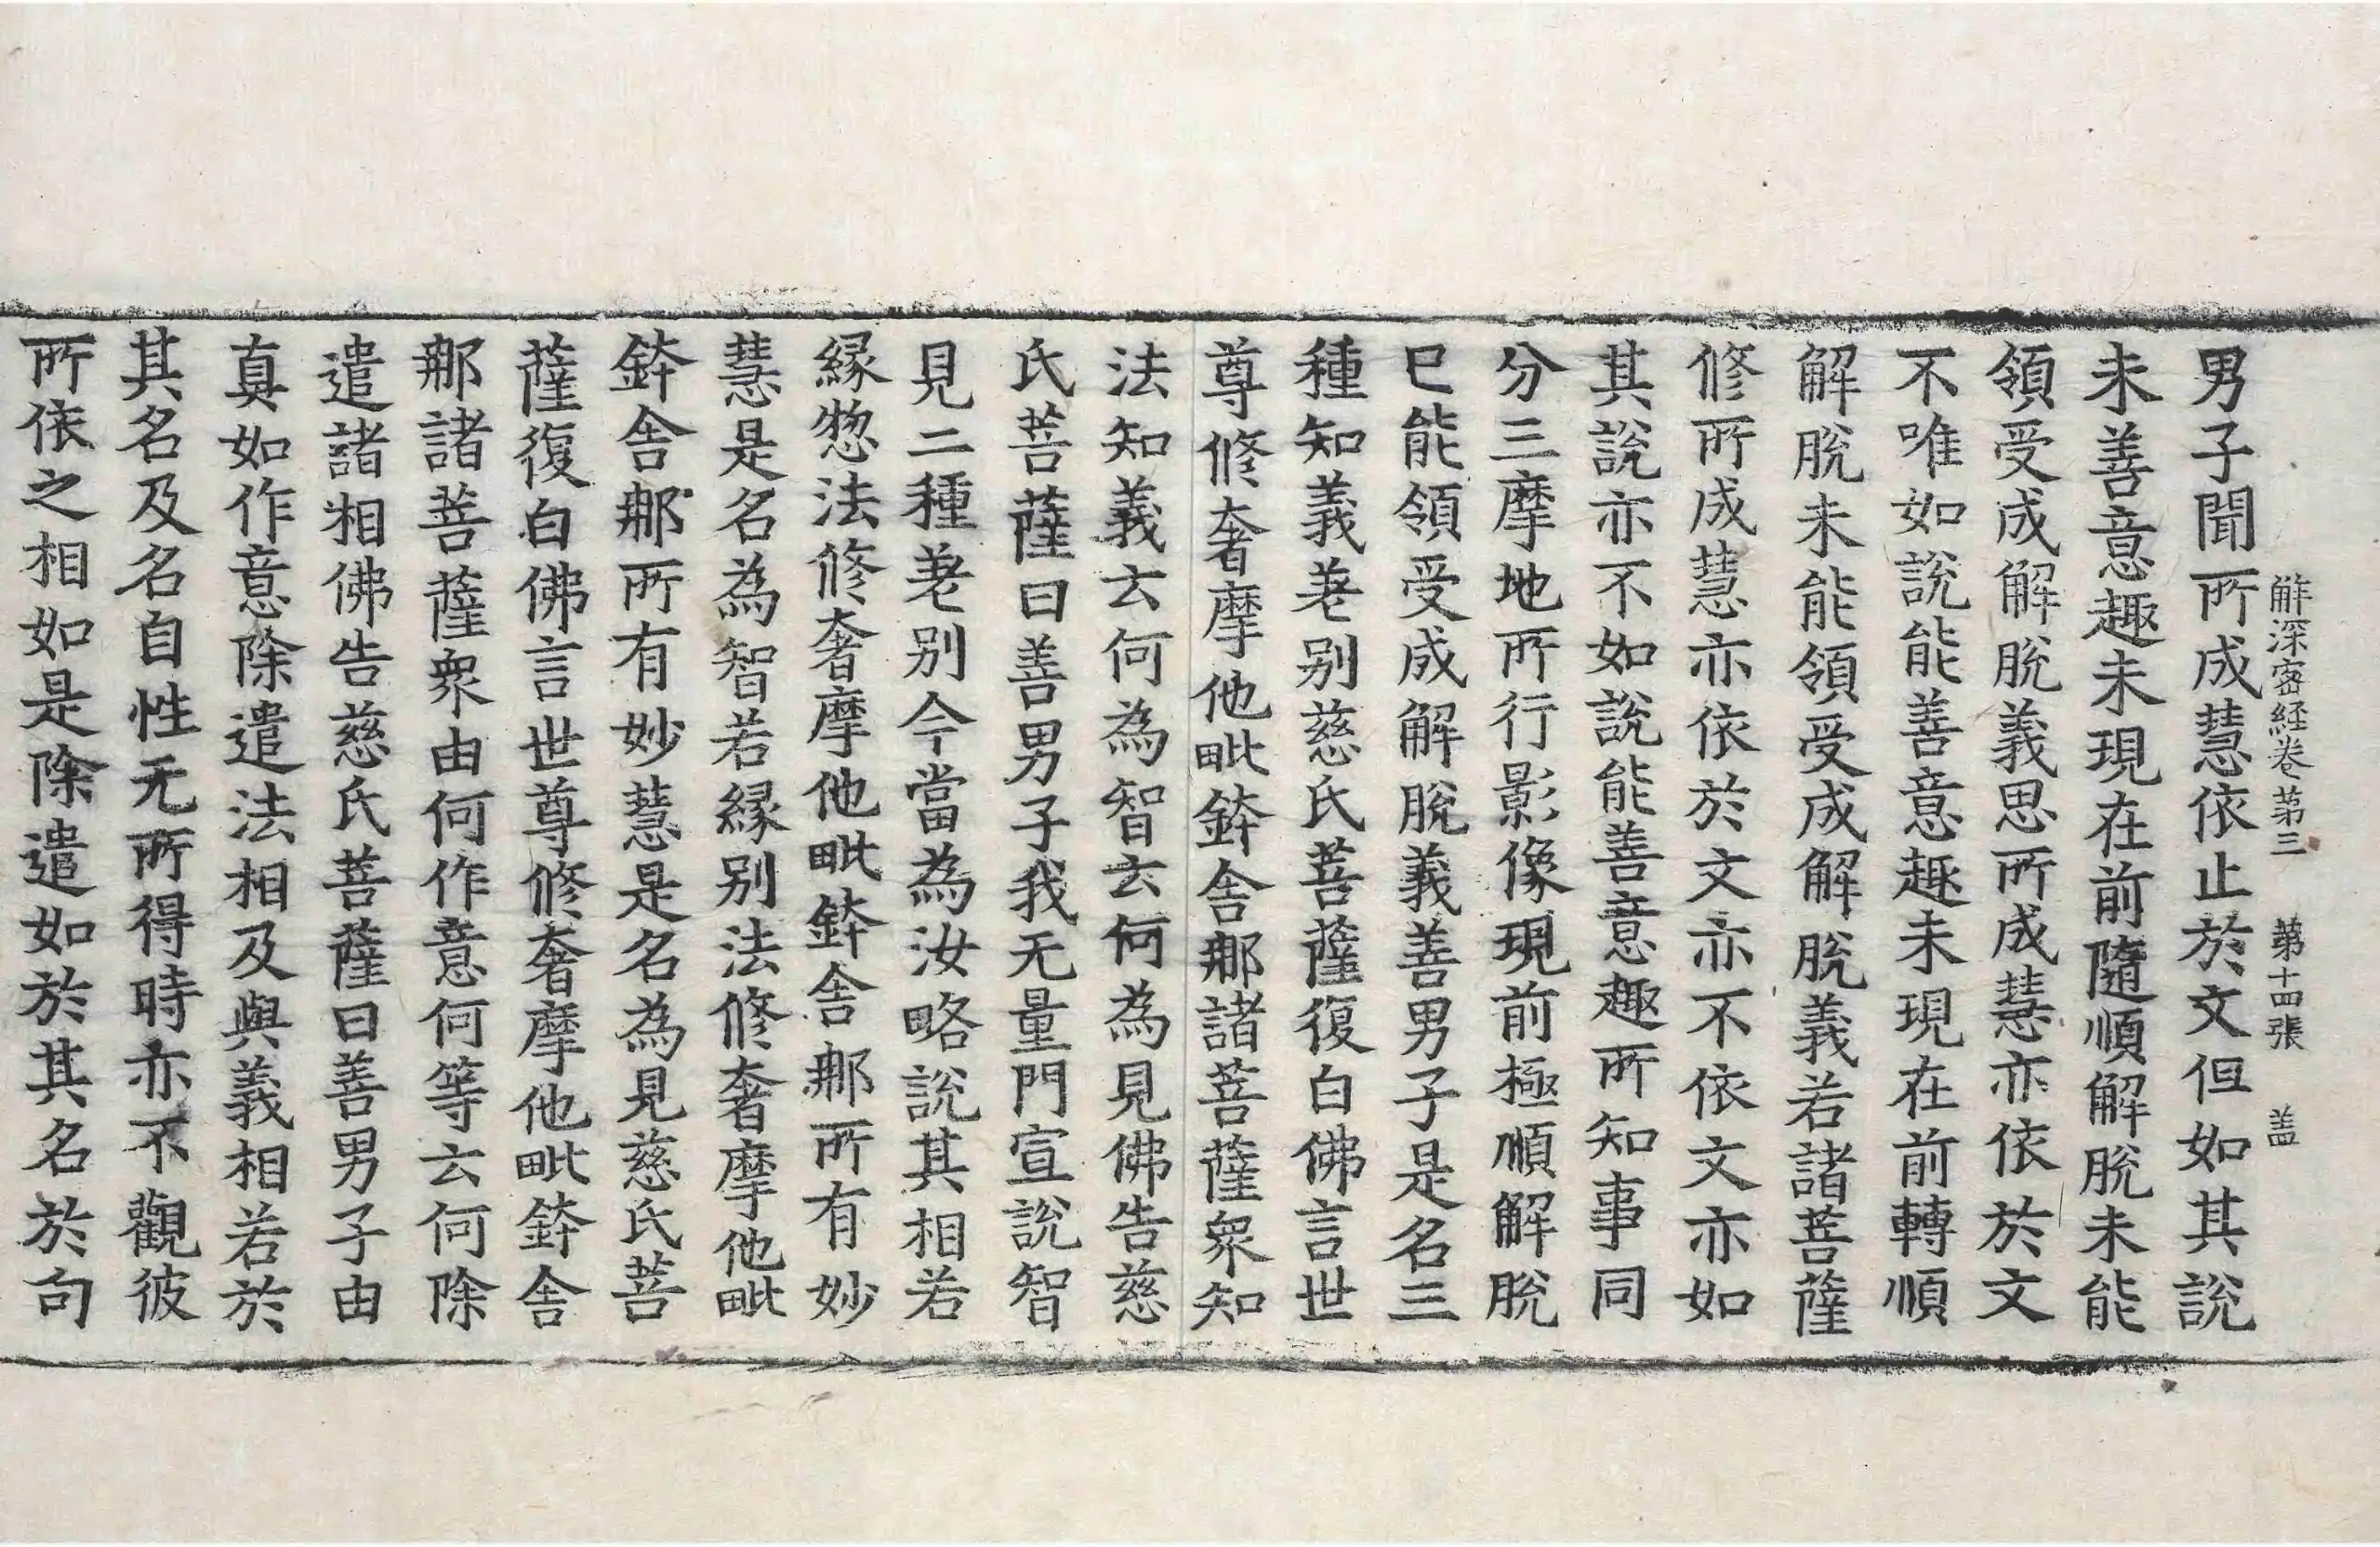 解深密経卷第三 第十四張 盖
男子聞所成慧依止於文但如其說
未善意趣未現在前隨順解脫未能
領受成解脫義思所成慧亦依於文
不唯如說能善意趣未現在前轉順
解脫未能領受成解脫義若諸菩薩
修所成慧亦依於文亦不依文亦如
其說亦不如說能善意趣所知事同
分三摩地所行影像現前極順解脫
已能領受成解脫義善男子是名三
種知義差别慈氏菩薩復白佛言世
尊修奢摩他毗鉢舍那諸菩薩衆知
法知義云何為智云何為見佛告慈
氏菩薩曰善男子我无量門宣說智
見二種差别今當為汝略說其相若
緣惣法修奢摩他毗鉢舍那所有妙
慧是名為智若緣别法修奢摩他毗
鉢舍那所有妙慧是名為見慈氏菩
薩復白佛言世尊修奢摩他毗鉢舍
那諸菩薩衆由何作意何等云何除
遣諸相佛告慈氏菩薩曰善男子由
真如作意除遣法相及與義相若於
其名及名自性无所得時亦不觀彼
所依之相如是除遣如於其名於句